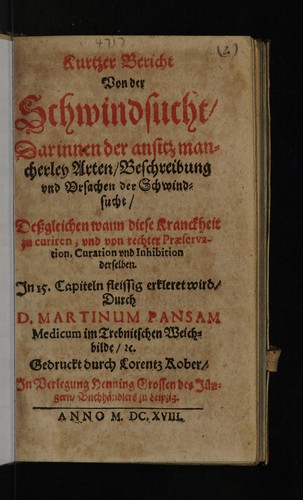 4717
(2)
Kurtzer Bericht
Von der
Schwindsucht/
Darinnen der ansitz, man-
cherley Arten/Beschreibung
vnd Vrsachen der Schwind-
sucht/
Deßgleichen wann diese Kranckheit
zu curiren, vnd von rechter Præserva-
tion, Curation vnd Inhibition
derselben.
In 15. Capiteln fleissig erkleret wird/
Durch
D. MARTINUM PANSAM
Medicum im Trebnitschen Weich-
bilde/ ꝛc.
Gedruckt durch Lorentz Kober/
In Verlegung Henning Grossen des Jün-
gern/ Buchhändlers zu Leipzig.
ANNO M. DC. XVIII.